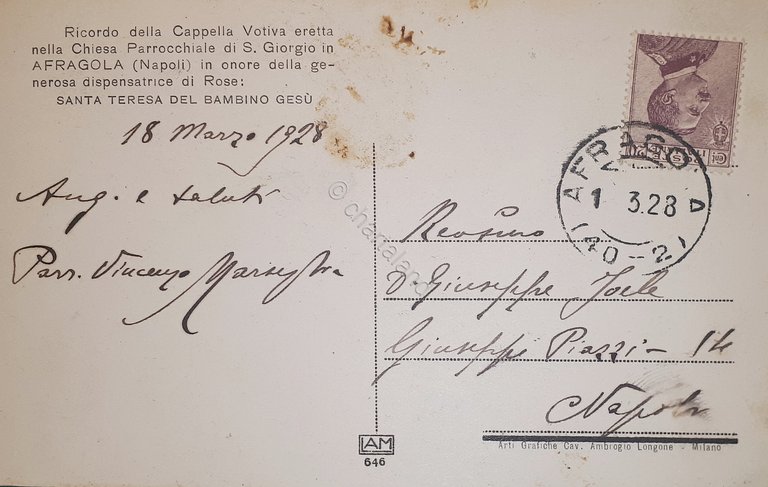 Ricordo della Cappella Votiva eretta
nella Chiesa Parrocchiale di S. Giorgio in
AFRAGOLA (Napoli) in onore della ge-
nerosa dispensatrice di Rose:
SANTA TERESA DEL BAMBINO GESÙ
18 Marzo 1928
Aug. e saluti
Parr. Vincenzo Marseglia
AFRAGO A
1 3.28
(40-2)
© chartaland
D. Giuseppe
Giuseppe Piazzi - 14
Napoli
IAM
646
Arti Grafiche Cav. Ambrogio Longone - Milano